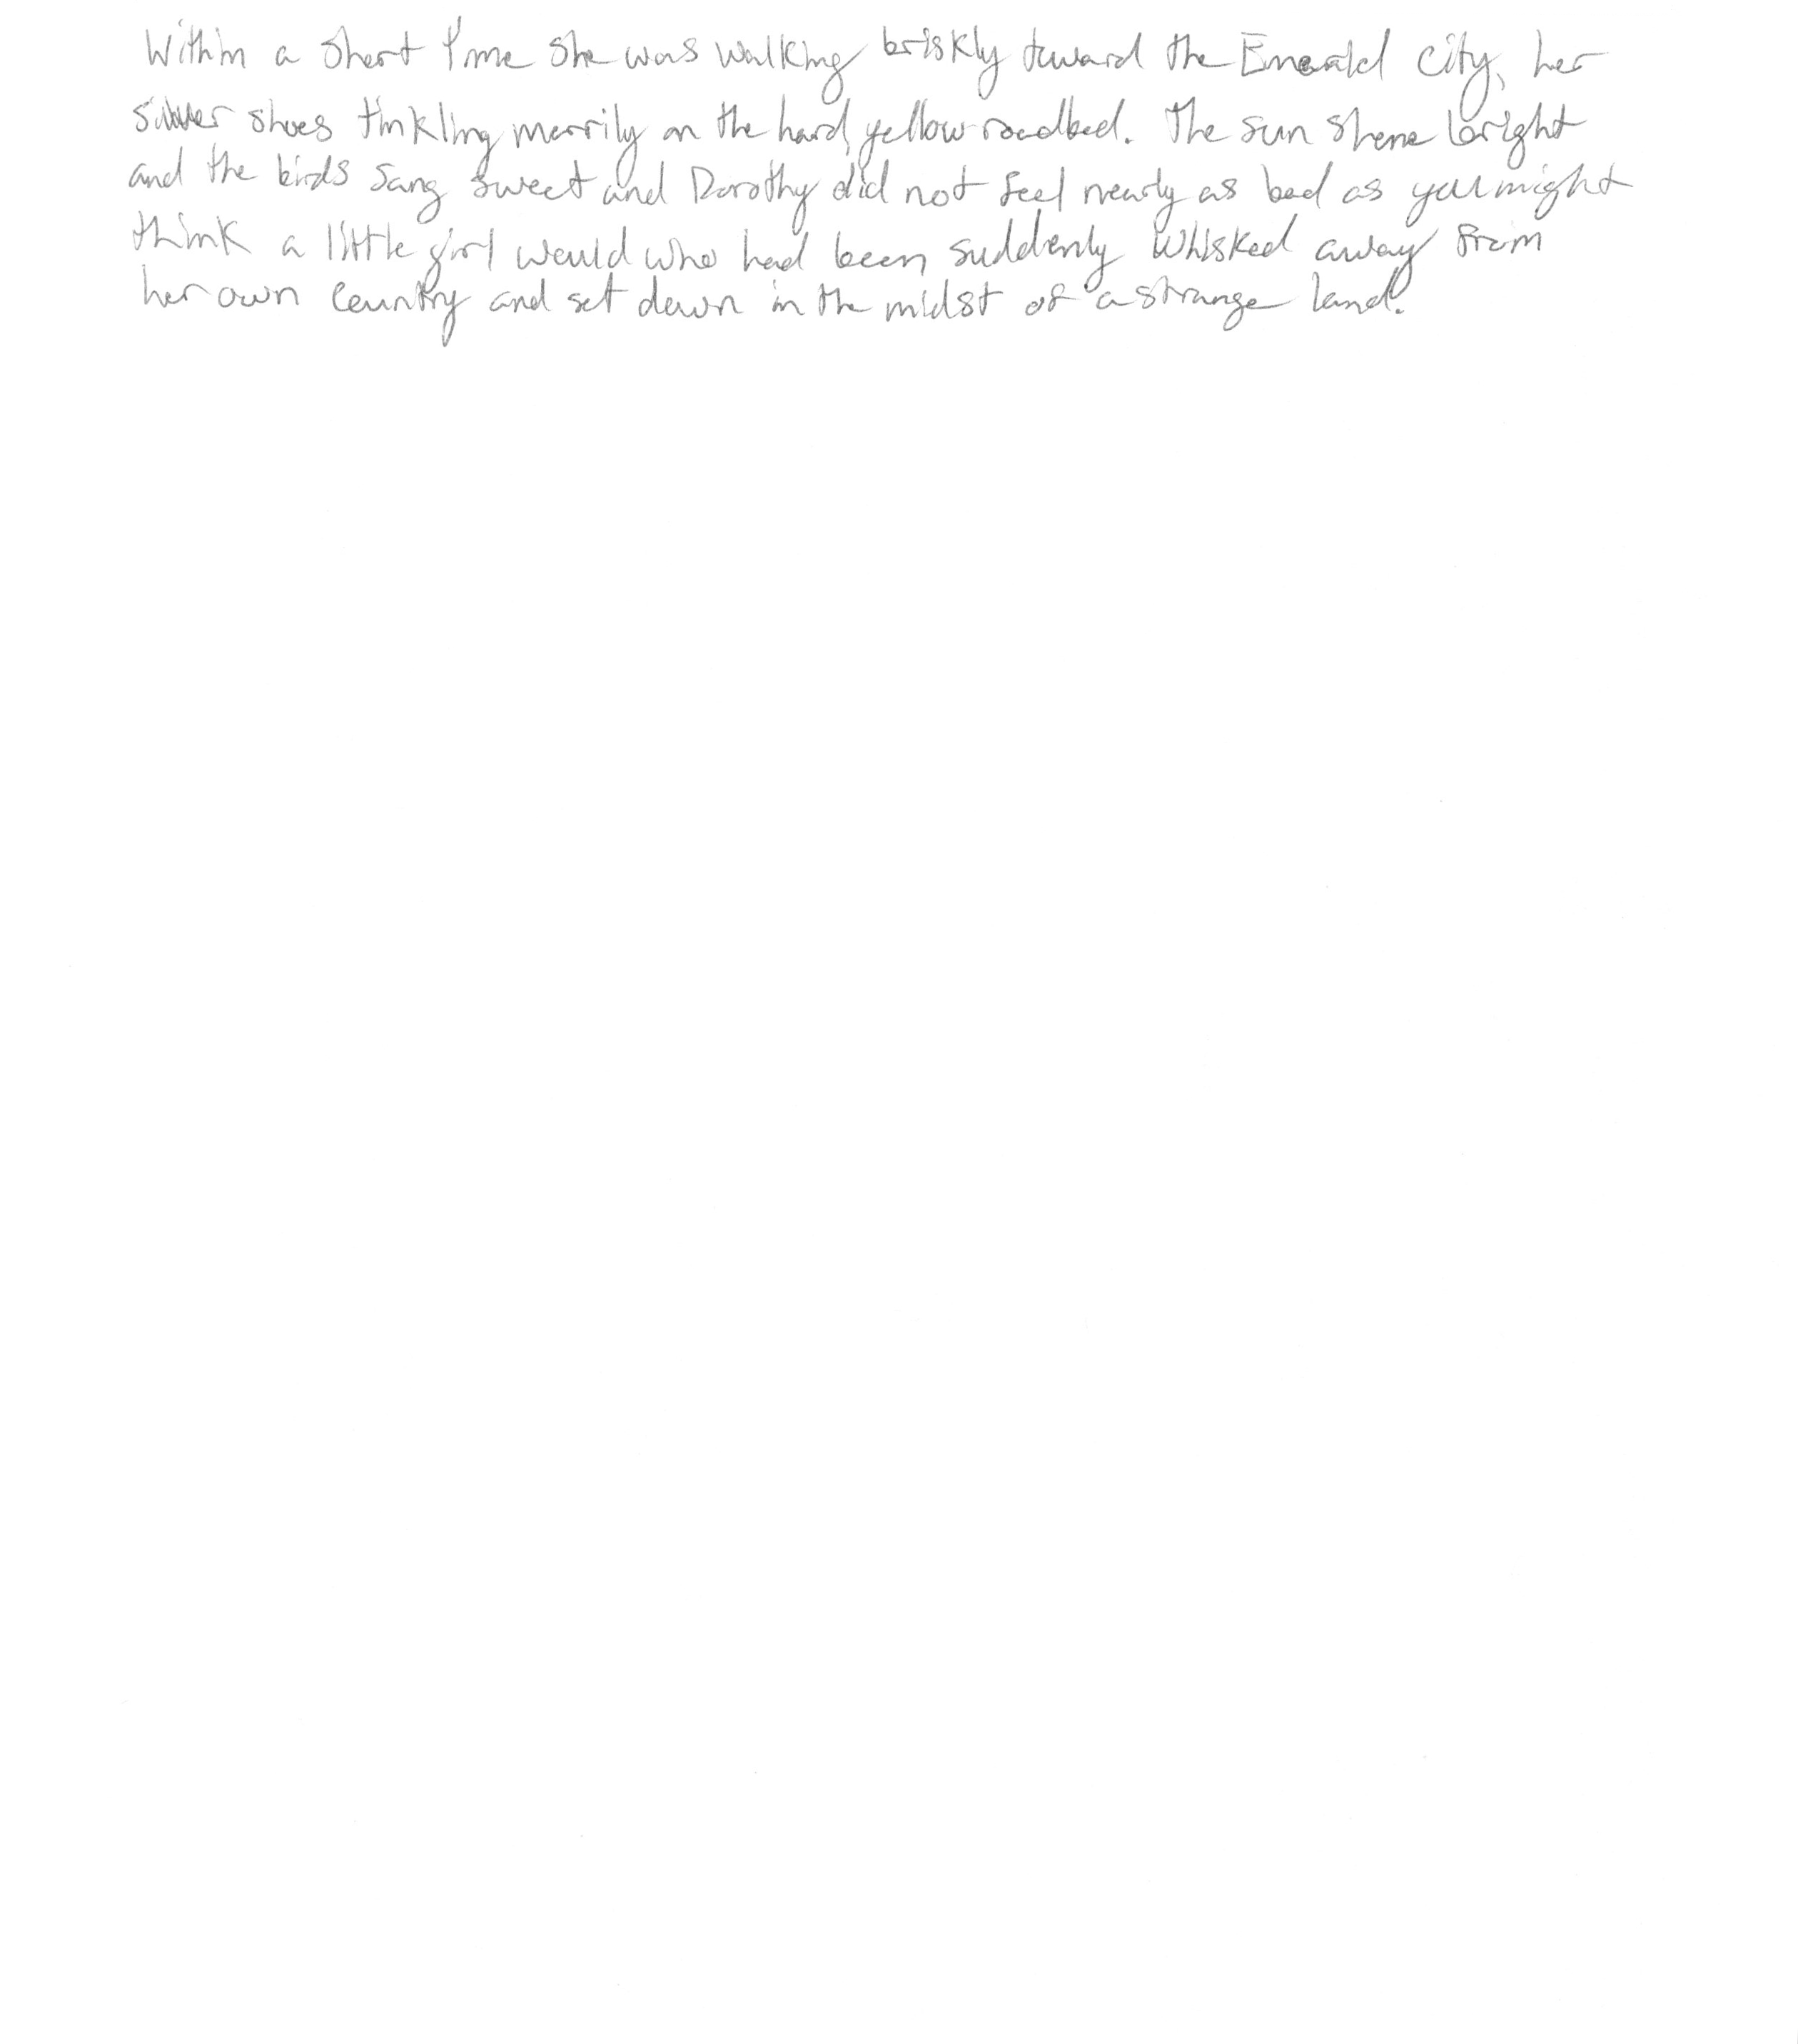 Within a short time she was walking briskly toward the Emerald City, her
silver shoes tinkling merrily on the hard, yellow roadbed. The sun shone bright
and the birds sang sweet and Dorothy did not feel nearly as bad as you might
think a little girl would who had been suddenly whisked away from
her own country and set down in the midst of a strange land.